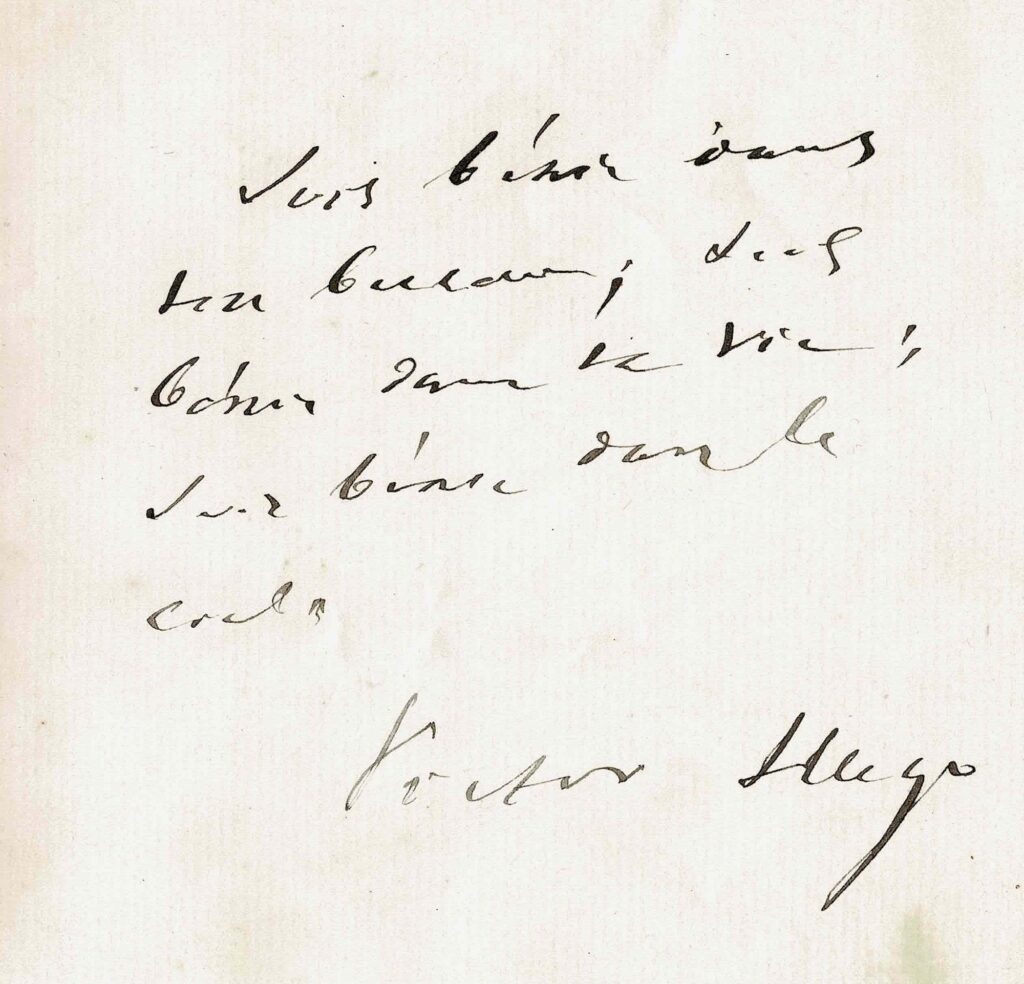 Sois bénie dans
ton berceau ; sois
bénie dans ta vie ;
sois bénie dans le
ciel.
Victor Hugo